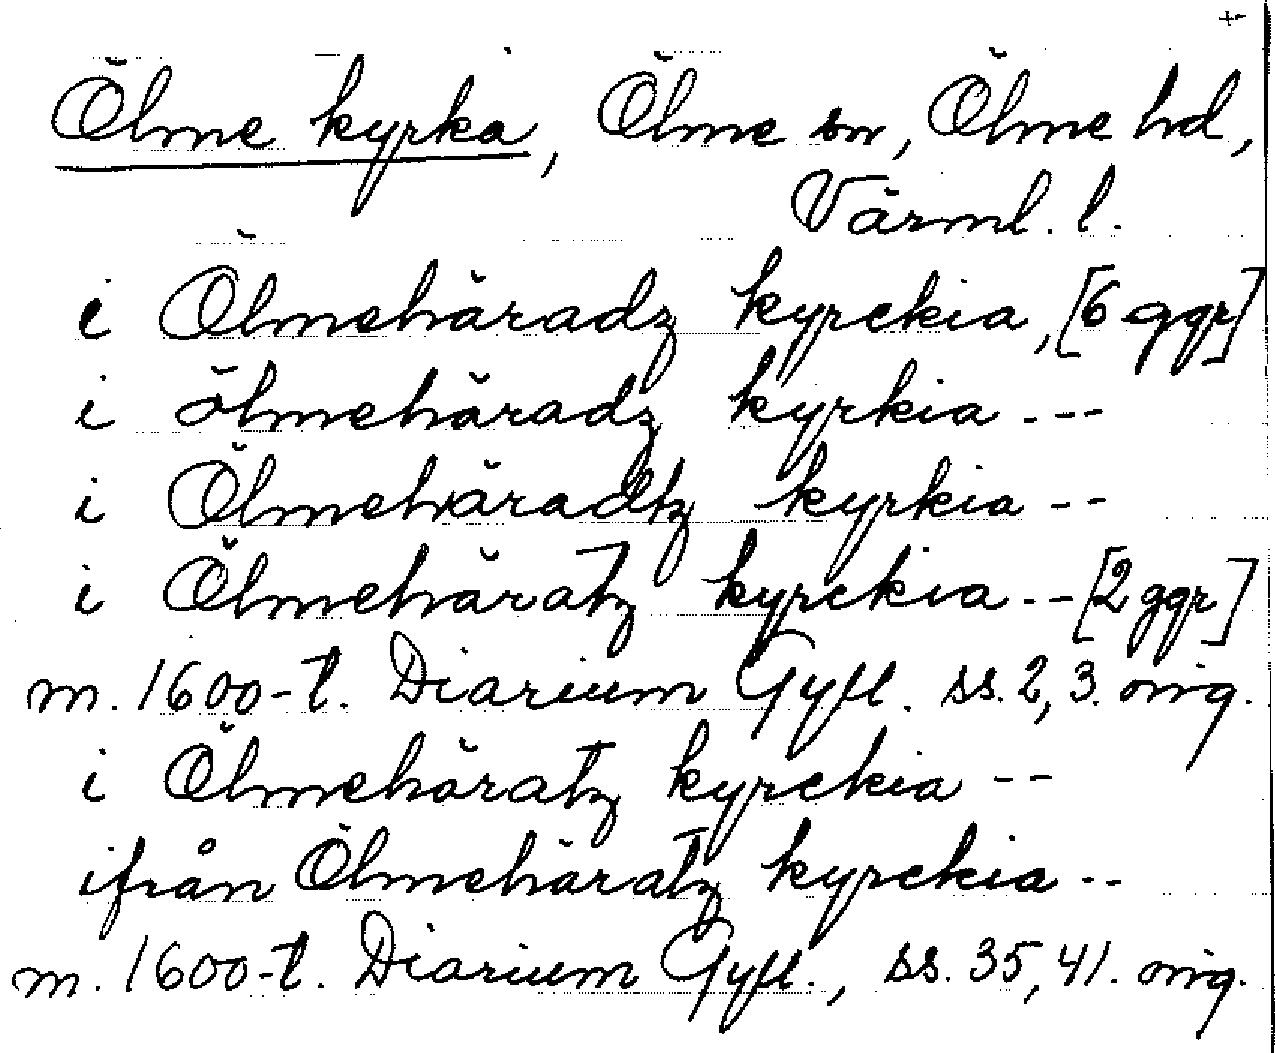 +
Ölme kyrka, Ölme sn, Ölme hd,
Värml. l.
i Ölmehäradz kyrckia, [6 ggr]
i ölmehäradz kyrkia ---
i Ölmehäradtz kyrkia --
i Ölmehäratz kyrckia -- [2 ggr]
m. 1600-t. Diarium Gyll. ss. 2, 3. orig.
i Ölmehäratz kyrckia --
ifrån Ölmehäratz kyrckia --
m. 1600-t. Diarium Gyll., ss. 35, 41. orig.